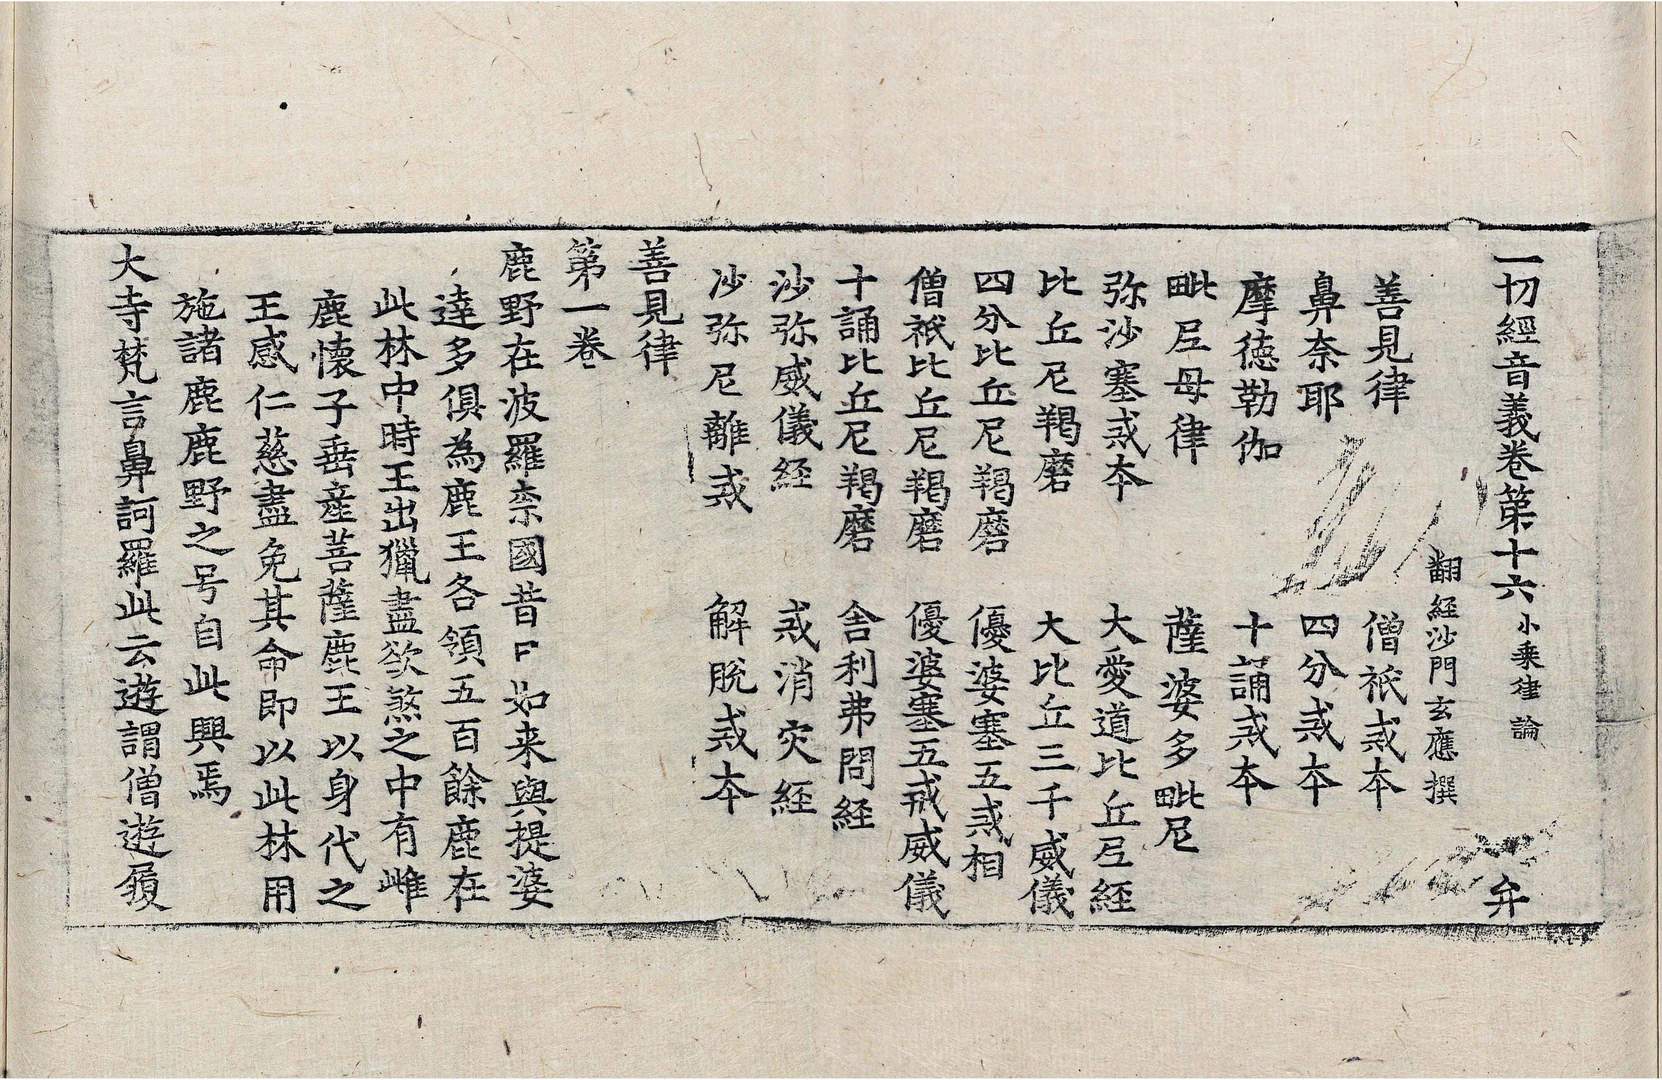 一切經音義卷第十六 小乘律論 弁
翻經沙門玄應撰
善見律 僧祇戒本
鼻奈耶 四分戒本
摩德勒伽 十誦戒本
毗尼母律 薩婆多毗尼
弥沙塞戒本 大愛道比丘尼經
比丘尼羯磨 大比丘三千威儀
四分比丘尼羯磨 優婆塞五戒相
僧祇比丘尼羯磨 優婆塞五戒威儀
十誦比丘尼羯磨 舍利弗問経
沙弥威儀経 戒消灾経
沙弥尼離戒 解脫戒本
善見律
第一卷
鹿野在波羅柰國昔日如来與提婆
達多俱為鹿王各領五百餘鹿在
此林中時王出獵盡欲煞之中有雌
鹿懷子垂產菩薩鹿王以身代之
王感仁慈盡免其命即以此林用
施諸鹿鹿野之号自此興焉
大寺梵言鼻訶羅此云遊謂僧遊履